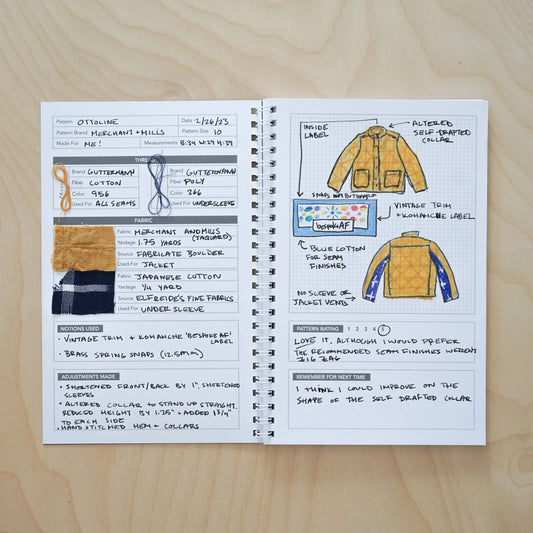 Pattern OTTOLINE Date 2/26/23
Pattern Brand MERCHANT + MILLS Pattern Size 10
Made For ME! Measurements B:34 W:27 H:39
THREAD
Brand GUTTERMANN Brand GUTTERMANN
Fiber COTTON Fiber POLY
Color 956 Color 266
Used For ALL SEAMS Used For UNDERSLEEVE
FABRIC
Fabric MERCHANT AND MILLS
Yardage 1.75 YARDS (JAQUARD)
Source FABRICATE BOULDER
Used For JACKET
Fabric JAPANESE COTTON
Yardage 1/4 YARD
Source ELFREIDE'S FINE FABRICS
Used For UNDER SLEEVE
NOTIONS USED
• VINTAGE TRIM + KOHANCHE "BESPOKE AF" LABEL
• BRASS SPRING SNAPS (12.5mm)
ADJUSTMENTS MADE
• SHORTENED FRONT/BACK BY 1", SHORTENED
SLEEVES
• ALTERED COLLAR TO STAND UP STRAIGHT.
REDUCED HEIGHT BY 1.25" + ADDED 1 3/4"
TO EACH SIDE
• HAND STITCHED HEM + COLLARS
INSIDE
LABEL
ALTERED
SELF-DRAFTED
COLLAR
SNAPS NOT BUTTONS
bespokeAF
VINTAGE TRIM
+ KOHANCHE LABEL
BLUE COTTON
FOR SEAM
FINISHES
NO SLEEVE OR
JACKET VENTS
PATTERN RATING 1 2 3 4 5
LOVE IT, ALTHOUGH I WOULD PREFER
THE RECOMMENDED SEAM FINISHES WEREN'T
ZIG ZAG
REMEMBER FOR NEXT TIME
I THINK I COULD IMPROVE ON THE
SHAPE OF THE SELF DRAFTED COLLAR